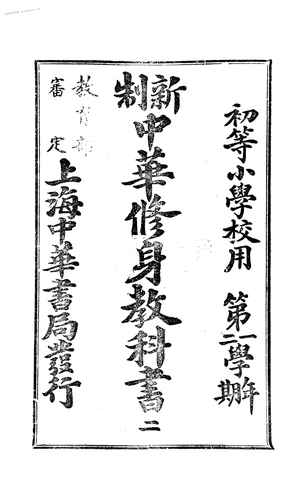 初等小學校用 第一學年二學期
新制中華修身教科書 二
教育部審定
上海中華書局發行